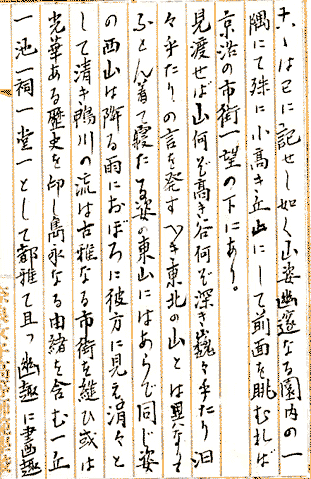 こゝは已に記せし如く山姿幽邃なる園内の一
隅にて殊に小高き丘山にして前面を眺むれば
京洛の市街一望の下にあり。
見渡せば山何ぞ高き谷何ぞ深き巍々乎たり汨
々乎たりの言を発すべき東北の山とは異なりて
ふとん着て寝たる姿の東山にはあらで同じ姿
の西山は降る雨におぼろに彼方に見え涓々と
して清き鴨川の流は古雅なる市街を縫ひ或は
光華ある歴史を印し雋永なる由緒を含む一丘
一池一祠一堂一として都雅て且つ幽趣に畫趣